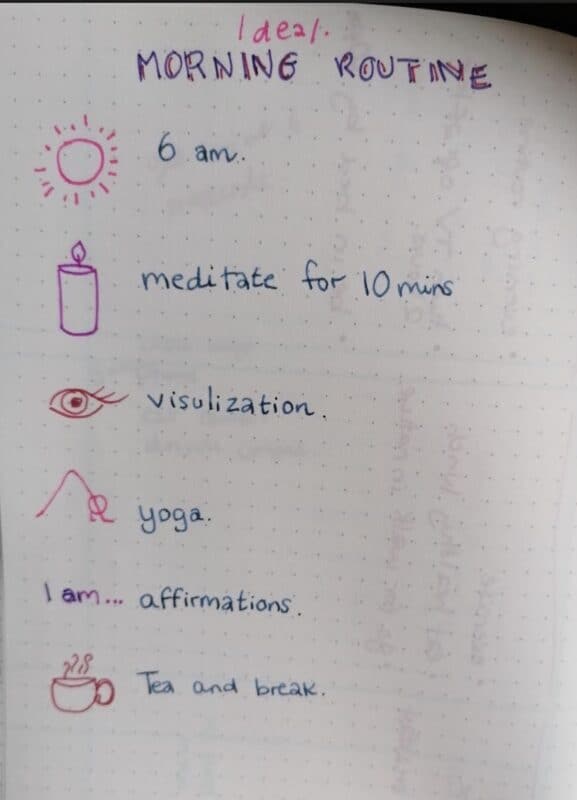 Ideal.
MORNING ROUTINE
6 am.
meditate for 10 mins
visulization.
yoga.
I am... affirmations.
Tea and break.